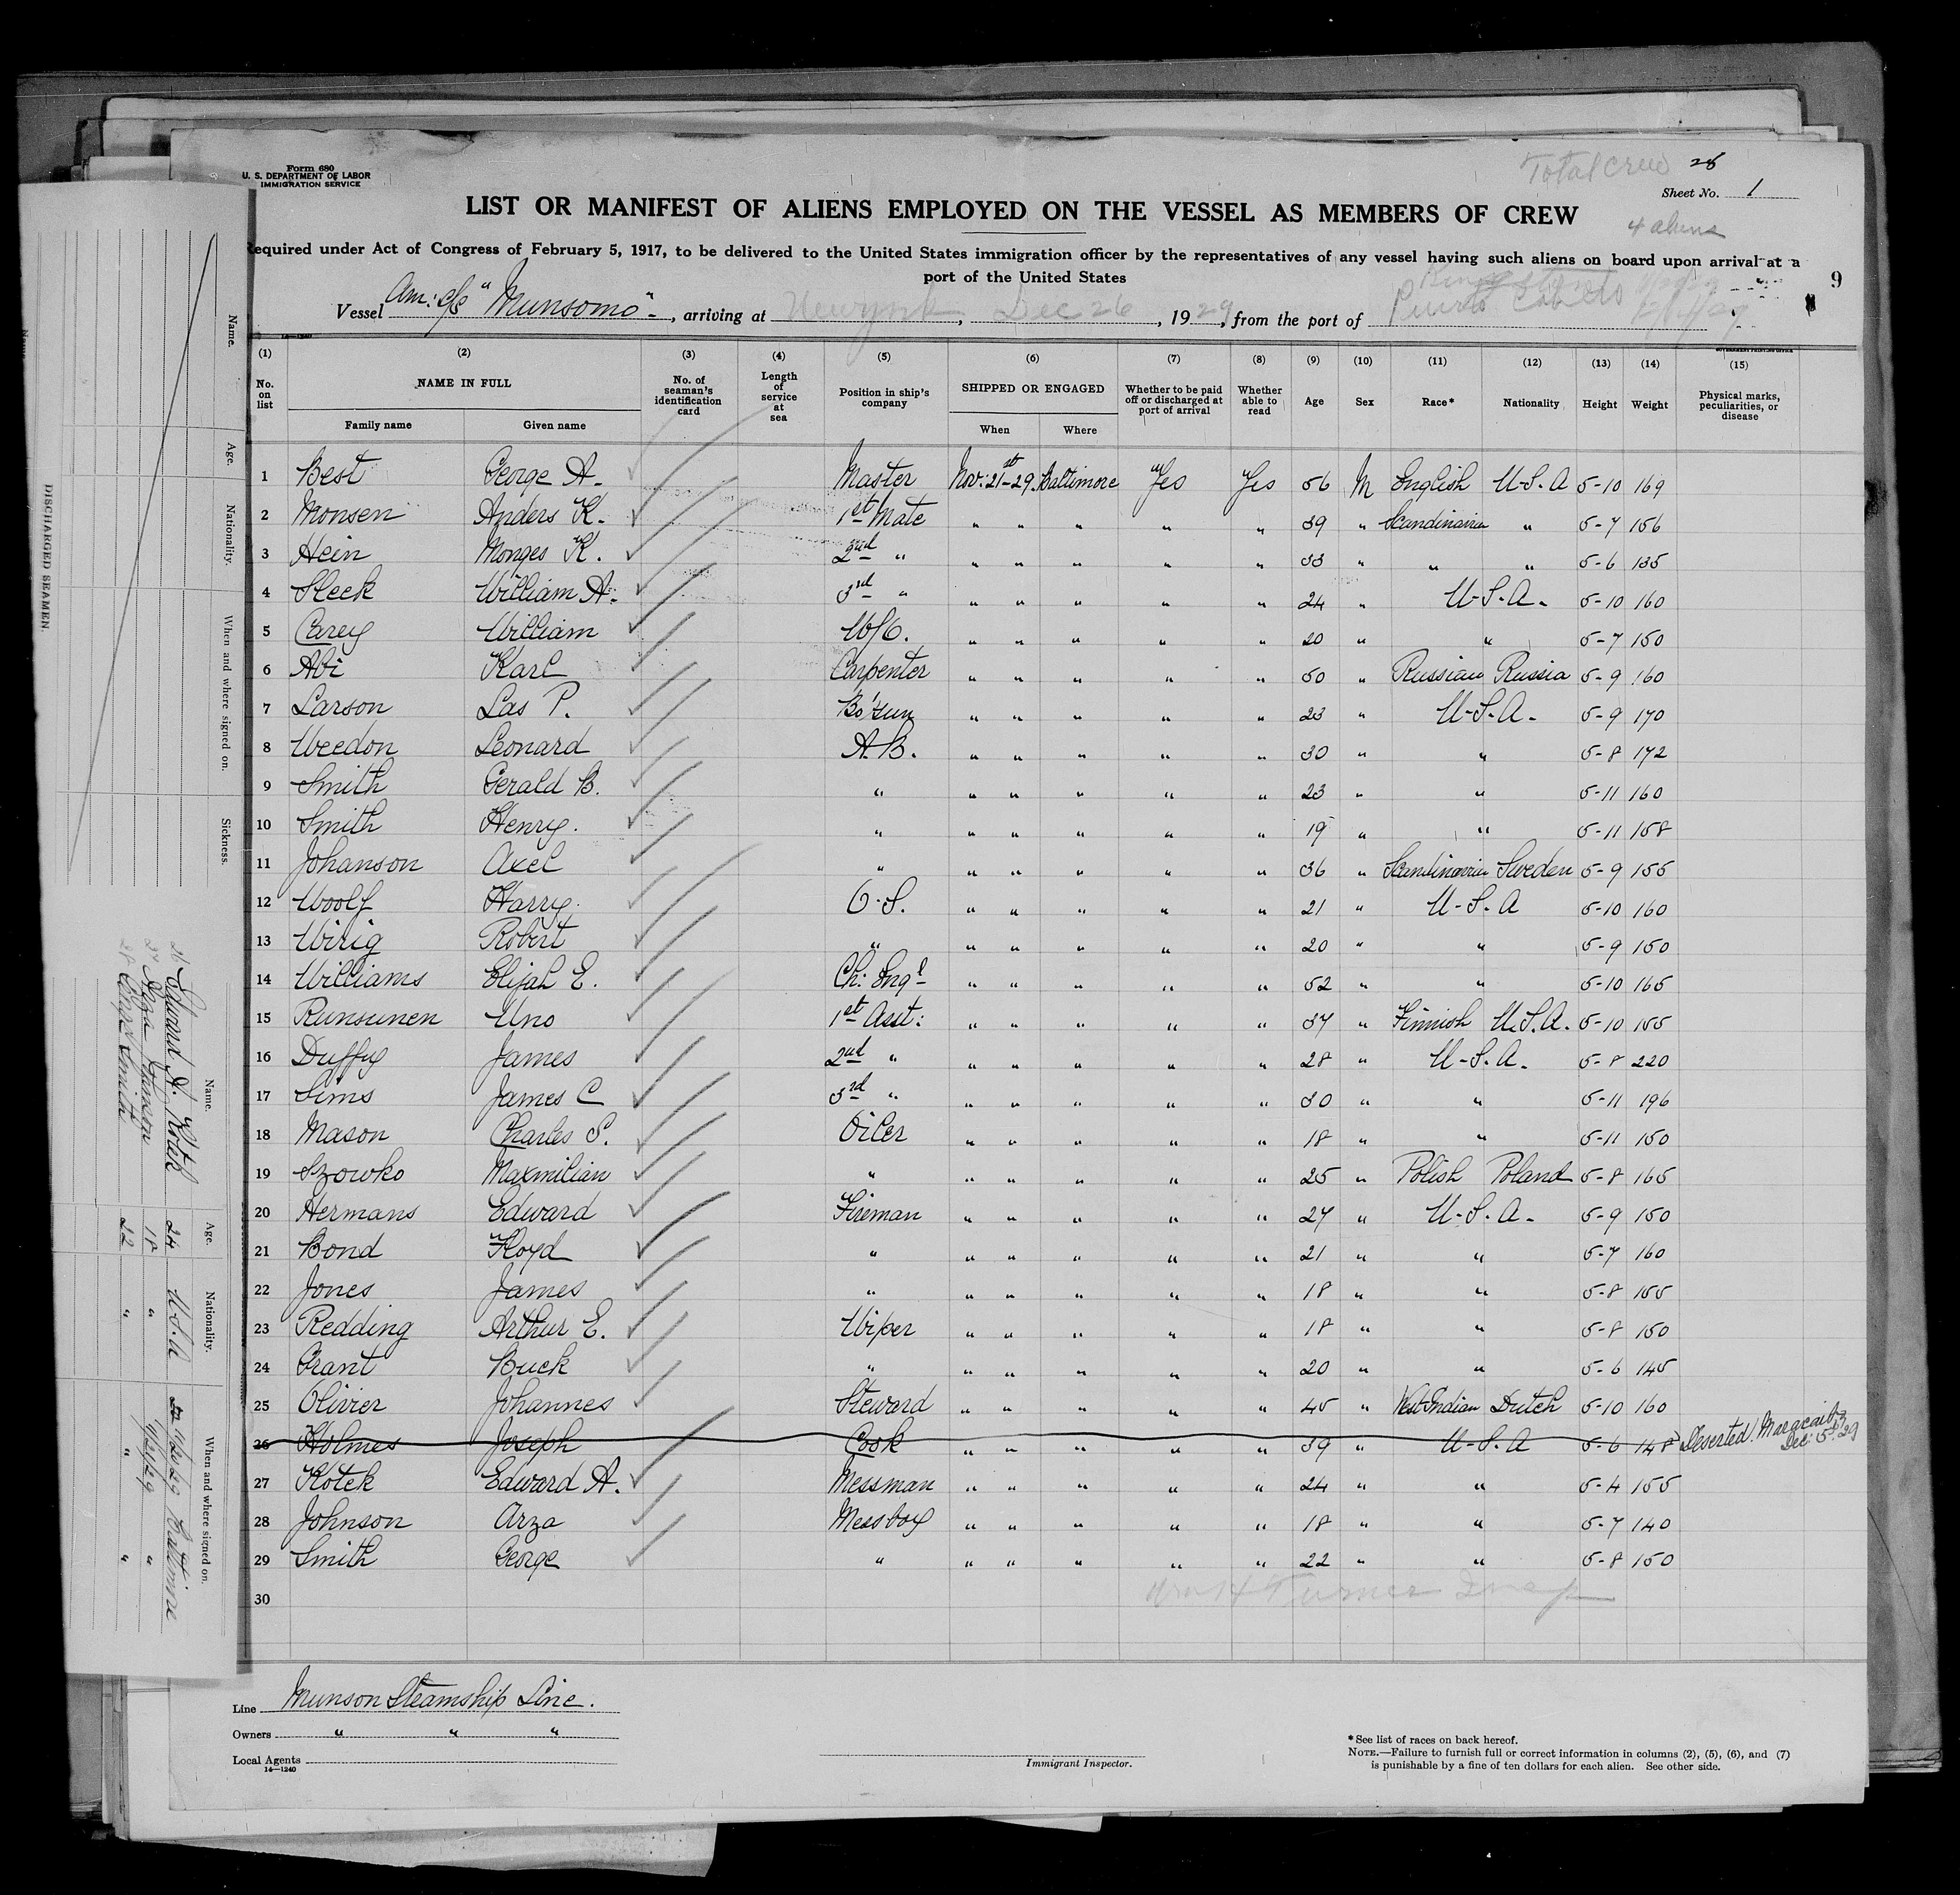 Form 680
U. S. DEPARTMENT OF LABOR
IMMIGRATION SERVICE
Total Crew 28
Sheet No. 1
LIST OR MANIFEST OF ALIENS EMPLOYED ON THE VESSEL AS MEMBERS OF CREW
4 aliens
Required under Act of Congress of February 5, 1917, to be delivered to the United States immigration officer by the representatives of any vessel having such aliens on board upon arrival at a
port of the United States
9
Vessel Am: s/s "Munsomo"., arriving at New York, Dec 26, 1929, from the port of Puerto Cabello
14—1240
GOVERNMENT PRINTING OFFICE
(1) (2) (3) (4) (5) (6) (7) (8) (9) (10) (11) (12) (13) (14) (15)
No. on list NAME IN FULL Family name Given name No. of seaman's identification card Length of service at sea Position in ship's company SHIPPED OR ENGAGED When Where Whether to be paid off or discharged at port of arrival Whether able to read Age Sex Race* Nationality Height Weight Physical marks, peculiarities, or disease
1 Best George A. Master Nov: 21st-29. Baltimore Yes Yes 56 M English U-S.A 5-10 169
2 Monsen Anders K. 1st Mate " " " " " 39 " Scandinavian " 5-7 156
3 Hein Monges K. 2nd " " " " " " 33 " " " 5-6 135
4 Sleek William A. 3rd " " " " " " 24 " U-S.A. 5-10 160
5 Carey William W/O. " " " " " 20 " " 5-7 150
6 Abi Karl Carpenter " " " " " 50 " Russian Russia 5-9 160
7 Larson Las P. Bo'sun " " " " " 23 " U-S.A. 5-9 170
8 Weedon Leonard A.B. " " " " " 30 " " 5-8 172
9 Smith Gerald B. " " " " " " 23 " " 5-11 160
10 Smith Henry. " " " " " " 19 " " 5-11 158
11 Johanson Axel " " " " " " 36 " Scandinavian Sweden 5-9 155
12 Woolf Harry. O.S. " " " " " 21 " U-S.A 5-10 160
13 Wirig Robert " " " " " " 20 " " 5-9 150
14 Williams Elijah E. Ch: Engr " " " " " 52 " " 5-10 165
15 Runsunen Uno 1st Asst: " " " " " 37 " Finnish U.S.A. 5-10 155
16 Duffy James 2nd " " " " " " 28 " U-S.A. 5-8 220
17 Sims James C 3rd " " " " " " 30 " " 5-11 196
18 Mason Charles S. Oiler " " " " " 18 " " 5-11 150
19 Szowko Maxmilian " " " " " " 25 " Polish Poland 5-8 165
20 Hermans Edward Fireman " " " " " 27 " U-S.A. 5-9 150
21 Bond Floyd " " " " " " 21 " " 5-7 160
22 Jones James " " " " " " 18 " " 5-8 155
23 Redding Arthur E. Wiper " " " " " 18 " " 5-8 150
24 Grant Buck " " " " " " 20 " " 5-6 145
25 Olivier Johannes Steward " " " " " 45 " West Indian Dutch 5-10 160
26 Holmes Joseph Cook " " " " " 39 " U-S.A 5-6 148 Deserted. Maracaibo Dec: 5th 29
27 Kotek Edward A. Messman " " " " " 24 " " 5-4 155
28 Johnson Arza Messboy " " " " " 18 " " 5-7 140
29 Smith George " " " " " " 22 " " 5-8 150
30
Turner Insp
Line Munson Steamship Line.
Owners " " "
Local Agents
14—1240
Immigrant Inspector.
* See list of races on back hereof.
NOTE.—Failure to furnish full or correct information in columns (2), (5), (6), and (7)
is punishable by a fine of ten dollars for each alien. See other side.
DISCHARGED SEAMEN.
Name. Age. Nationality. When and where signed on. Sickness.
Name. Age. Nationality. When and where signed on.
Edward A. Kotek 24 U.S.A 11/21/29 Baltimore
27 Arza Johnson 18 " 11/21/29 "
28 George Smith 22 " " "